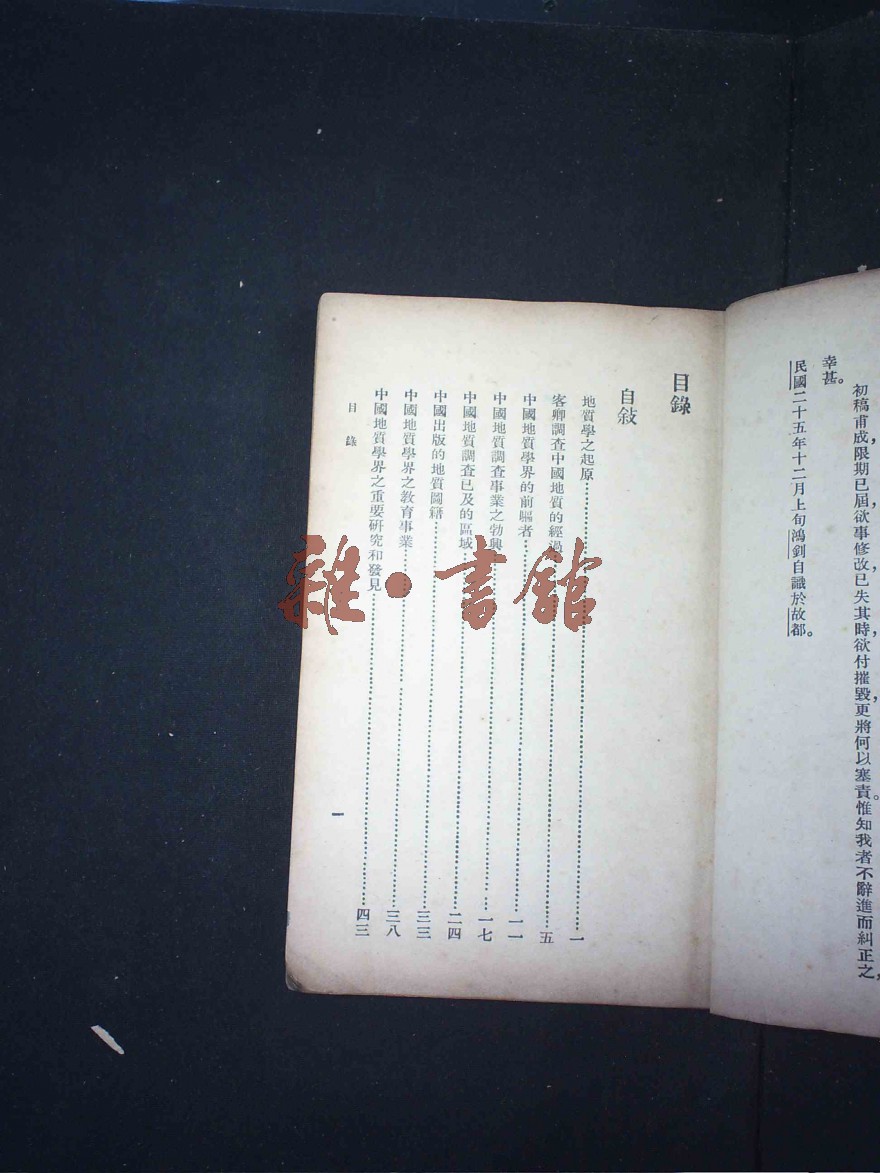 初稿甫成，限期已屆，欲事修改，已失其時，欲付摧毀，更將何以塞責。惟知我者不辭進而糾正之，
幸甚。
民國二十五年十二月上旬鴻釗自識於故都。
目錄
自敍
地質學之起原 一
客卿調查中國地質的經過 五
中國地質學界的前驅者 一一
中國地質調查事業之勃興 一七
中國地質調查已及的區域 二四
中國出版的地質圖籍 三三
中國地質學界之教育事業 三八
中國地質學界之重要研究和發見 四三
目錄
一
雜·書館